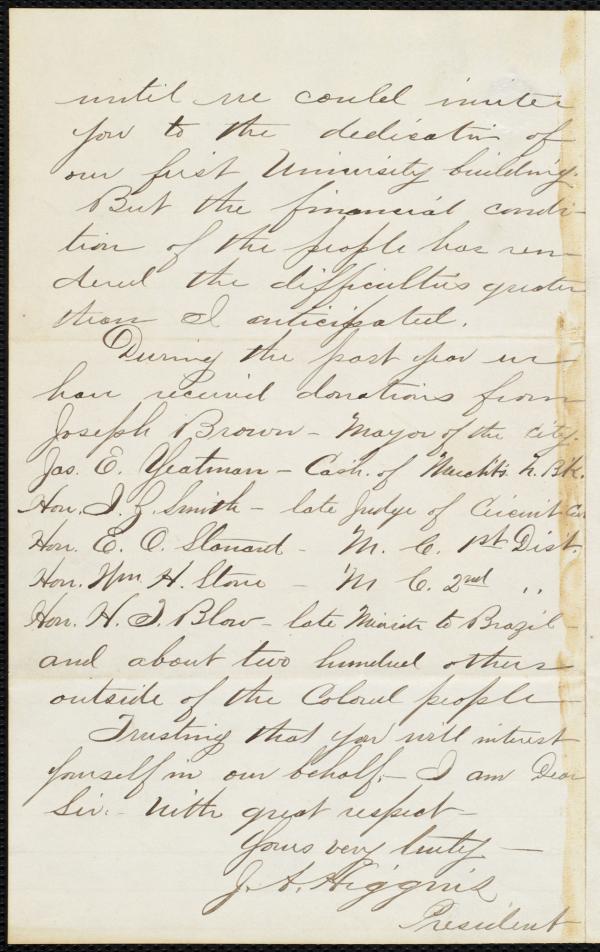 until we could invite
you to the dedication of
our first University building.
But the financial condi-
tion of the people has ren-
dered the difficulties greater
than I anticipated.
During the past year we
have received donations from
Joseph Brown - Mayor of the city.
Jas. E. Yeatman - Cash. of Merchts N. Bk.
Hon. I. Z. Smith - late Judge of Circuit Co.
Hon. E. O. Stanard - M. C. 1st Dist.
Hon. Wm. H. Stone - M C. 2nd ,,
Hon. H. T. Blow - late Minister to Brazil -
and about two hundred others
outside of the Colored people -
Trusting that you will interest
yourself in our behalf. - I am Dear
Sir: - With great respect -
Yours very truly -
J. A. Higgins
President